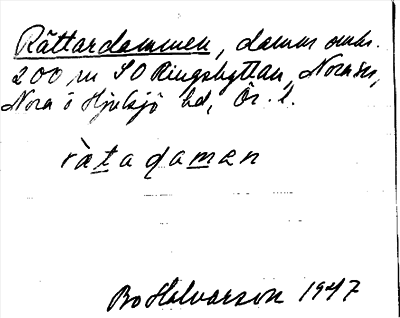 Rättardammen, damm omkr.
200 m SO Ringshyttan, Nora sn,
Nora o Hjulsjö bd, Ör. l.
rätadamen
Bo Halvarson 1947